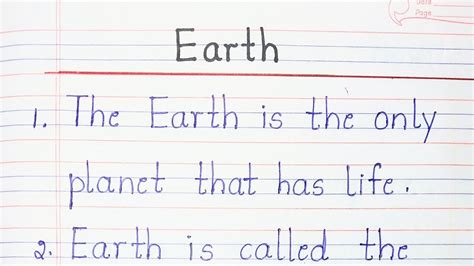 Date
Page
Earth
1. The Earth is the only
planet that has life.
2. Earth is called the